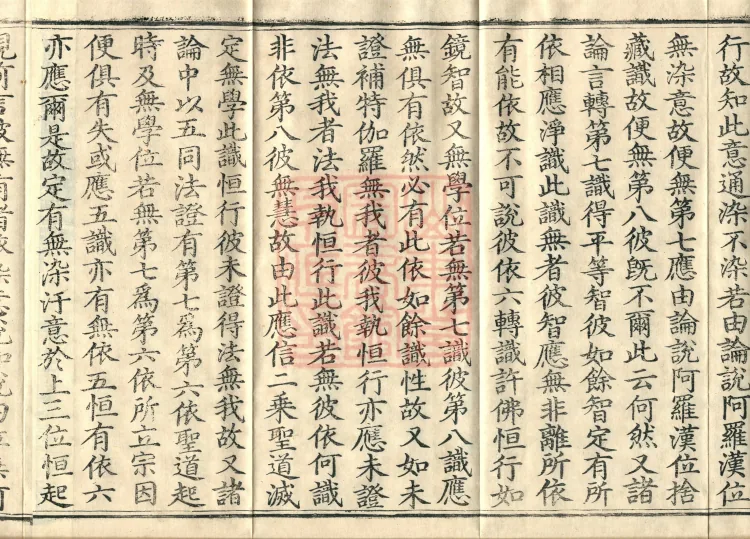 行故知此意通染不染若由論說阿羅漢位
無染意故便無第七應由論說阿羅漢位捨
藏識故便無第八彼旣不爾此云何然又諸
論言轉第七識得平等智彼如餘智定有所
依相應淨識此識無者彼智應無非離所依
有能依故不可說彼依六轉識許佛恒行如
鏡智故又無學位若無第七識彼第八識應
無俱有依然必有此依如餘識性故又如未
證補特伽羅無我者彼我執恒行亦應未證
法無我者法我執恒行此識若無彼依何識
非依第八彼無慧故由此應信二乘聖道滅
定無學此識恒行彼未證得法無我故又諸
論中以五同法證有第七爲第六依聖道起
時及無學位若無第七爲第六依所立宗因
便俱有失或應五識亦有無依五恒有依六
亦應爾是故定有無染汙意於上三位恒起